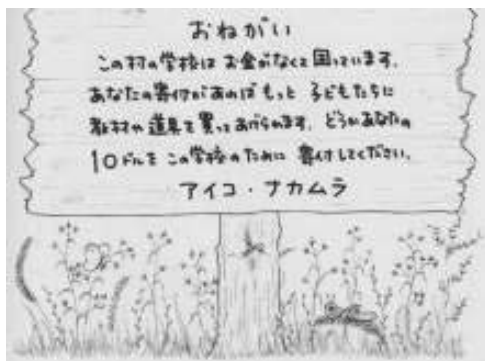 おねがい
この村の学校は お金がなくて困っています.
あなたの寄付があればもっと 子どもたちに
教材や道具を買ってあげられます. どうかあなたの
10ドルを この学校のために 寄付してください.
アイコ・ナカムラ